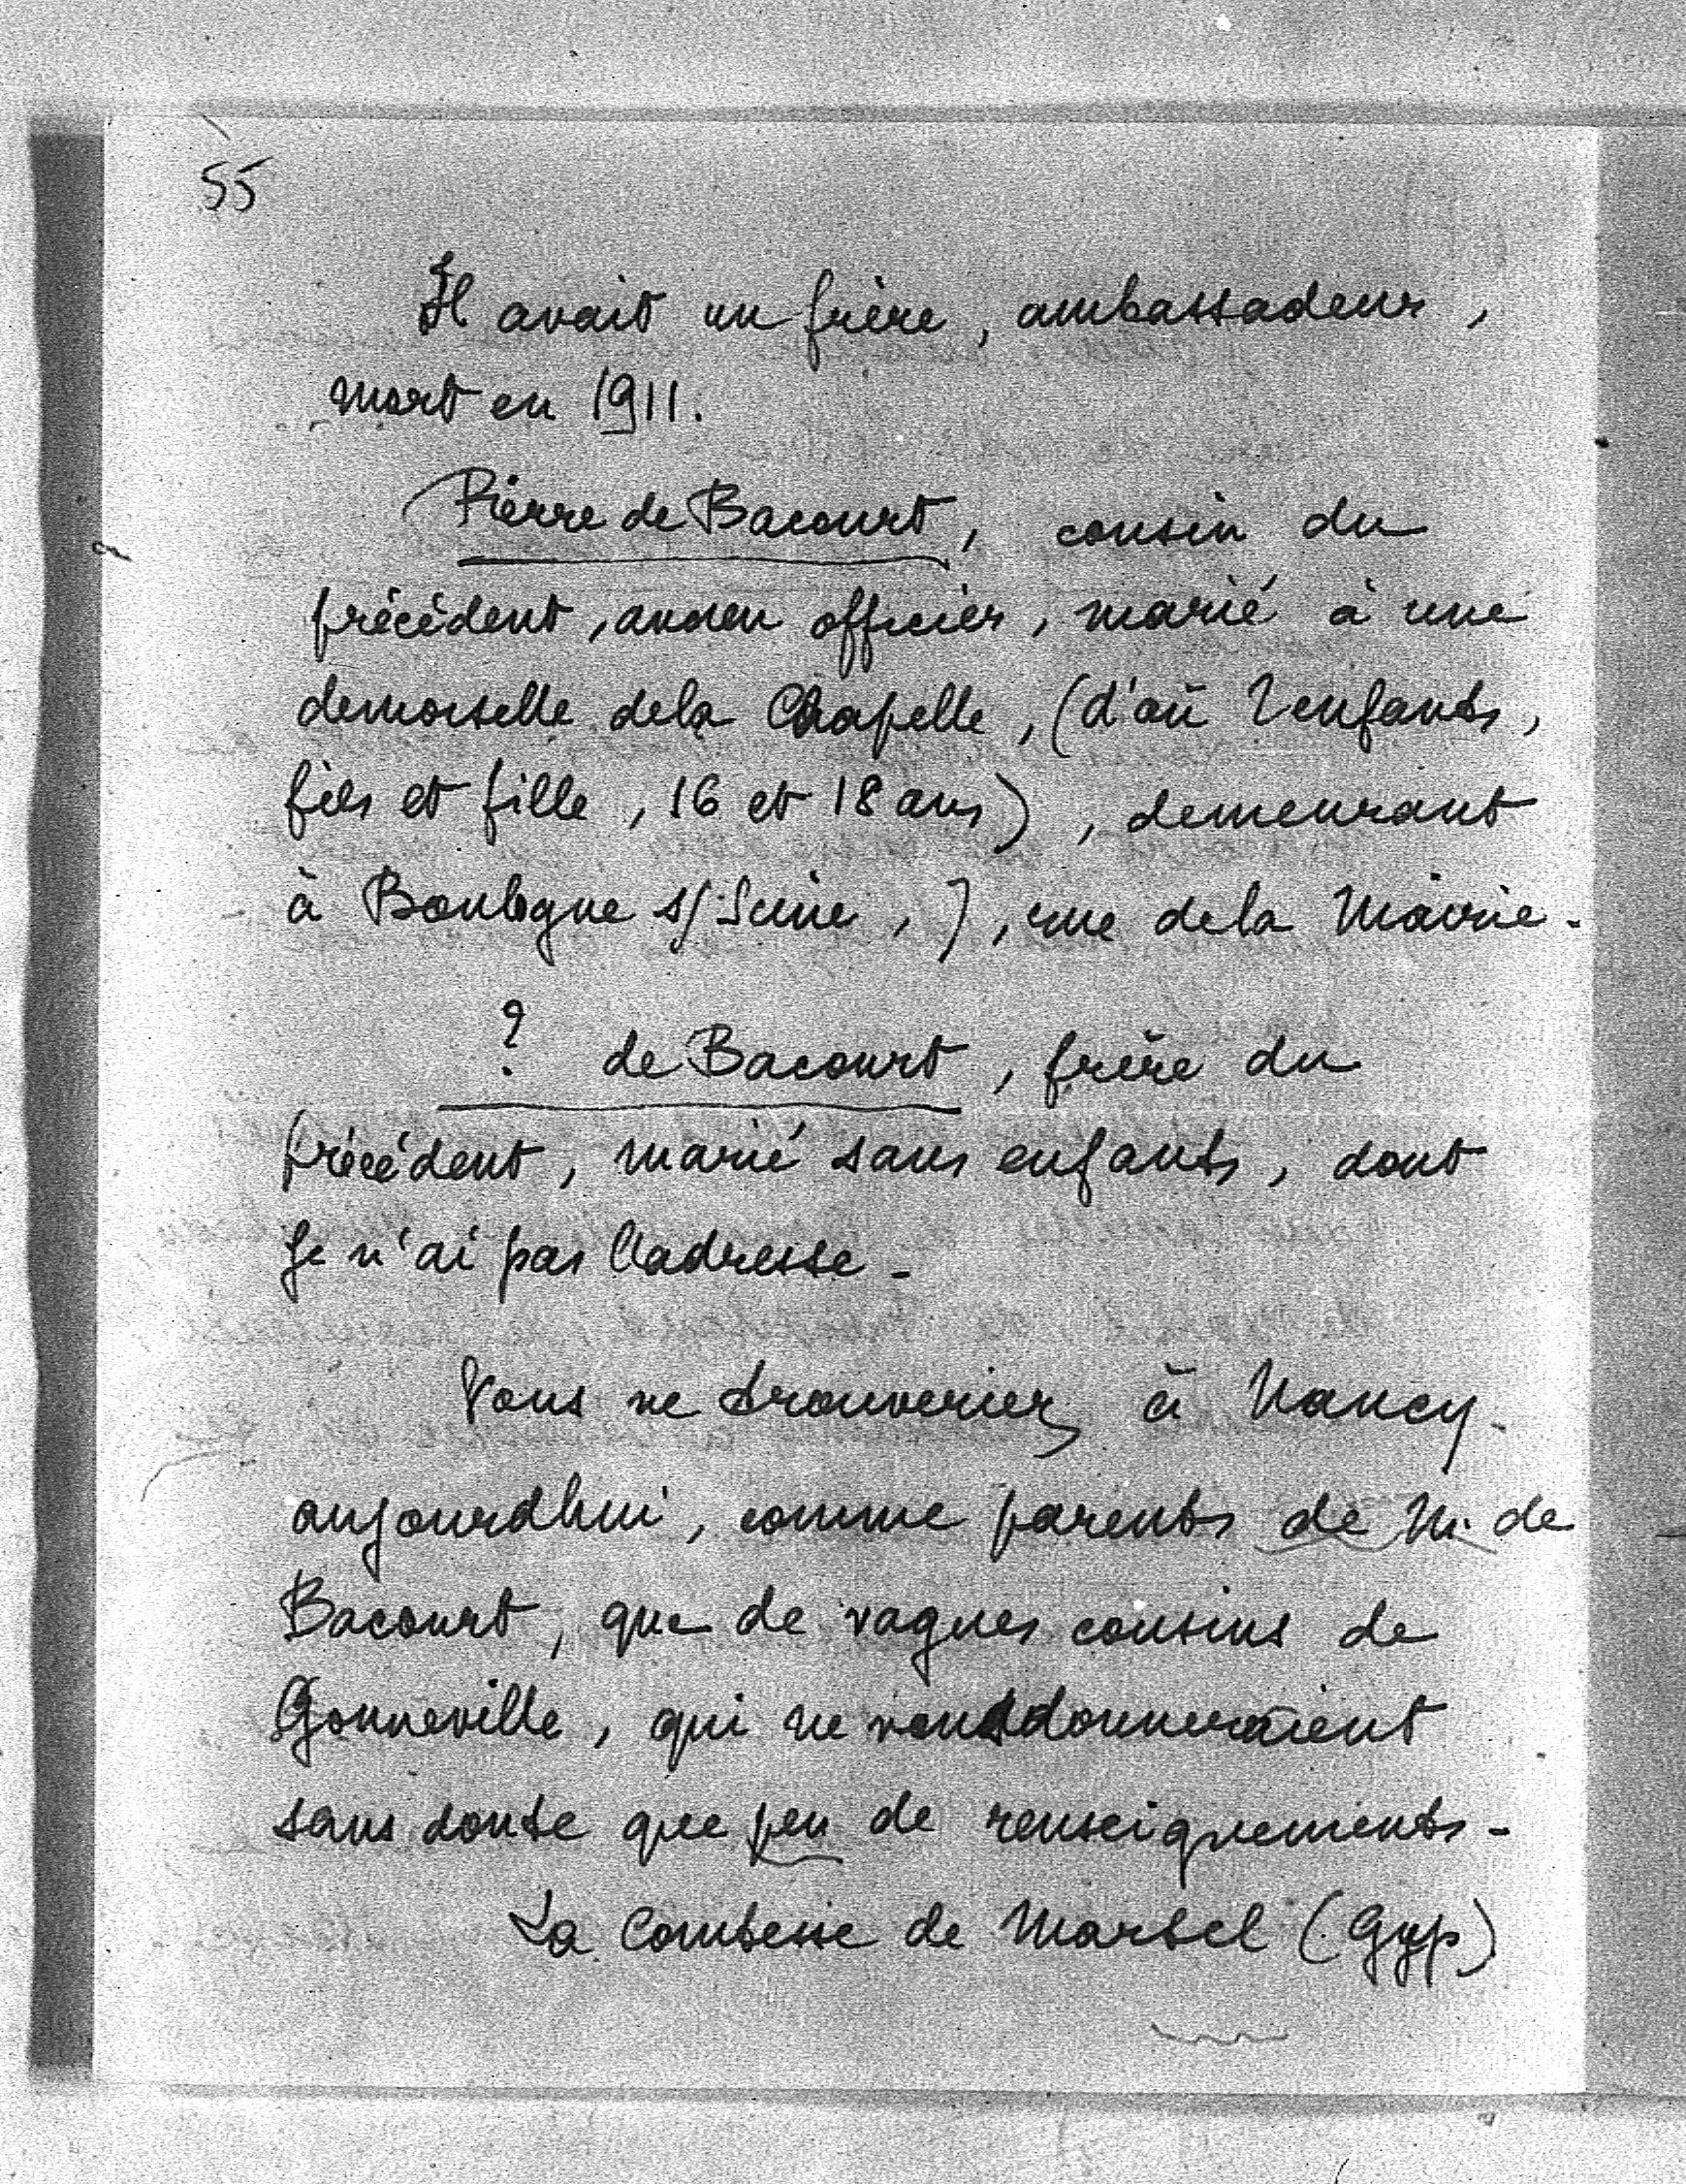 55
Il avait un frère, ambassadeur,
mort en 1911.
Pierre de Bacourt, cousin du
précédent, ancien officier, marié à une
demoiselle de la Chapelle, (d'où 2 enfants,
fils et fille, 16 et 18 ans), demeurant
à Boulogne s/Seine, 7, rue de la Mairie.
? de Bacourt, frère du
précédent, marié sans enfants, dont
je n'ai pas l'adresse.
Vous ne trouveriez à Nancy
aujourd'hui, comme parents de M. de
Bacourt, que de vagues cousins de
Gonneville, qui ne vous donneraient
sans doute que peu de renseignements.
La Comtesse de Martel (Gyp)